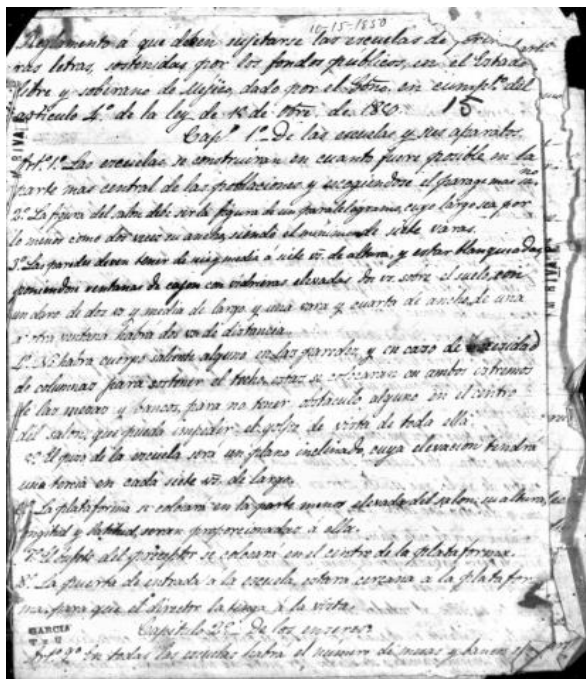 10-15-1850
Reglamento á que deben sujetarse las escuelas de prime
ras letras, sostenidas por los fondos publicos, en el Estado
libre y soberano de Mejico, dado por el Gbno. en cumplto. del
articulo 4º. de la ley de 15 de Obre. de 1850. 15
Capº. 1º. De las escuelas y sus aparatos.
Artº. 1º. Las escuelas se construiran en cuanto fuere posible en la
parte mas central de las poblaciones y escogiendose el parage mas
2º. La figura del salon debe ser la figura de un paralelogramo, cuyo largo sea por
lo menos como dos veces su ancho, siendo el minimum de siete varas.
3º. Las paredes deven tener de seis y media a siete vs. de altura, y estar blanqueadas,
poniendose ventanas de cajon con vidrieras elevadas dos vs. sobre el suelo, con
un claro de dos vs. y media de largo y una vara y cuarta de ancho, de una
a otra ventana habrá dos vs. de distancia.
4º. No habra cuerpo saliente alguno en las paredes, y en caso de necesidad
de columnas para sostener el techo, estas se colocaran en ambos extremos
de las mesas y bancos, para no tener obstáculo alguno en el centro
del salon, que pueda impedir el golpe de vista de toda ella.
5º. El piso de la escuela sera un plano inclinado, cuya elevacion tendrá
una tercia en cada siete vs. de largo.
6º. La plataforma se colocará en la parte menos elevada del salon; su altura,
longitud y latitud, seran proporcionadas a ella.
7º. El bufete del preceptor se colocara en el centro de la plataforma.
8º. La puerta de entrada a la escuela, estara cercana a la platafor
ma, para que el director la tenga á la vista.
Capitulo 2º. De los enseres
GARCIA
Artº. 9º. En todas las escuelas habrá el numero de mesas y bancos